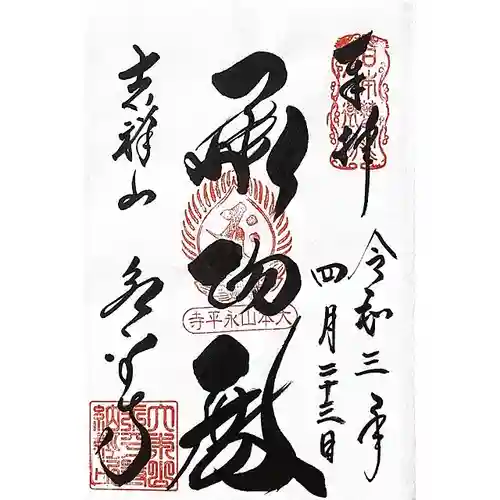 奉拝
令和三年
四月二十三日
承陽殿
大本山永平寺
吉祥山
永平寺